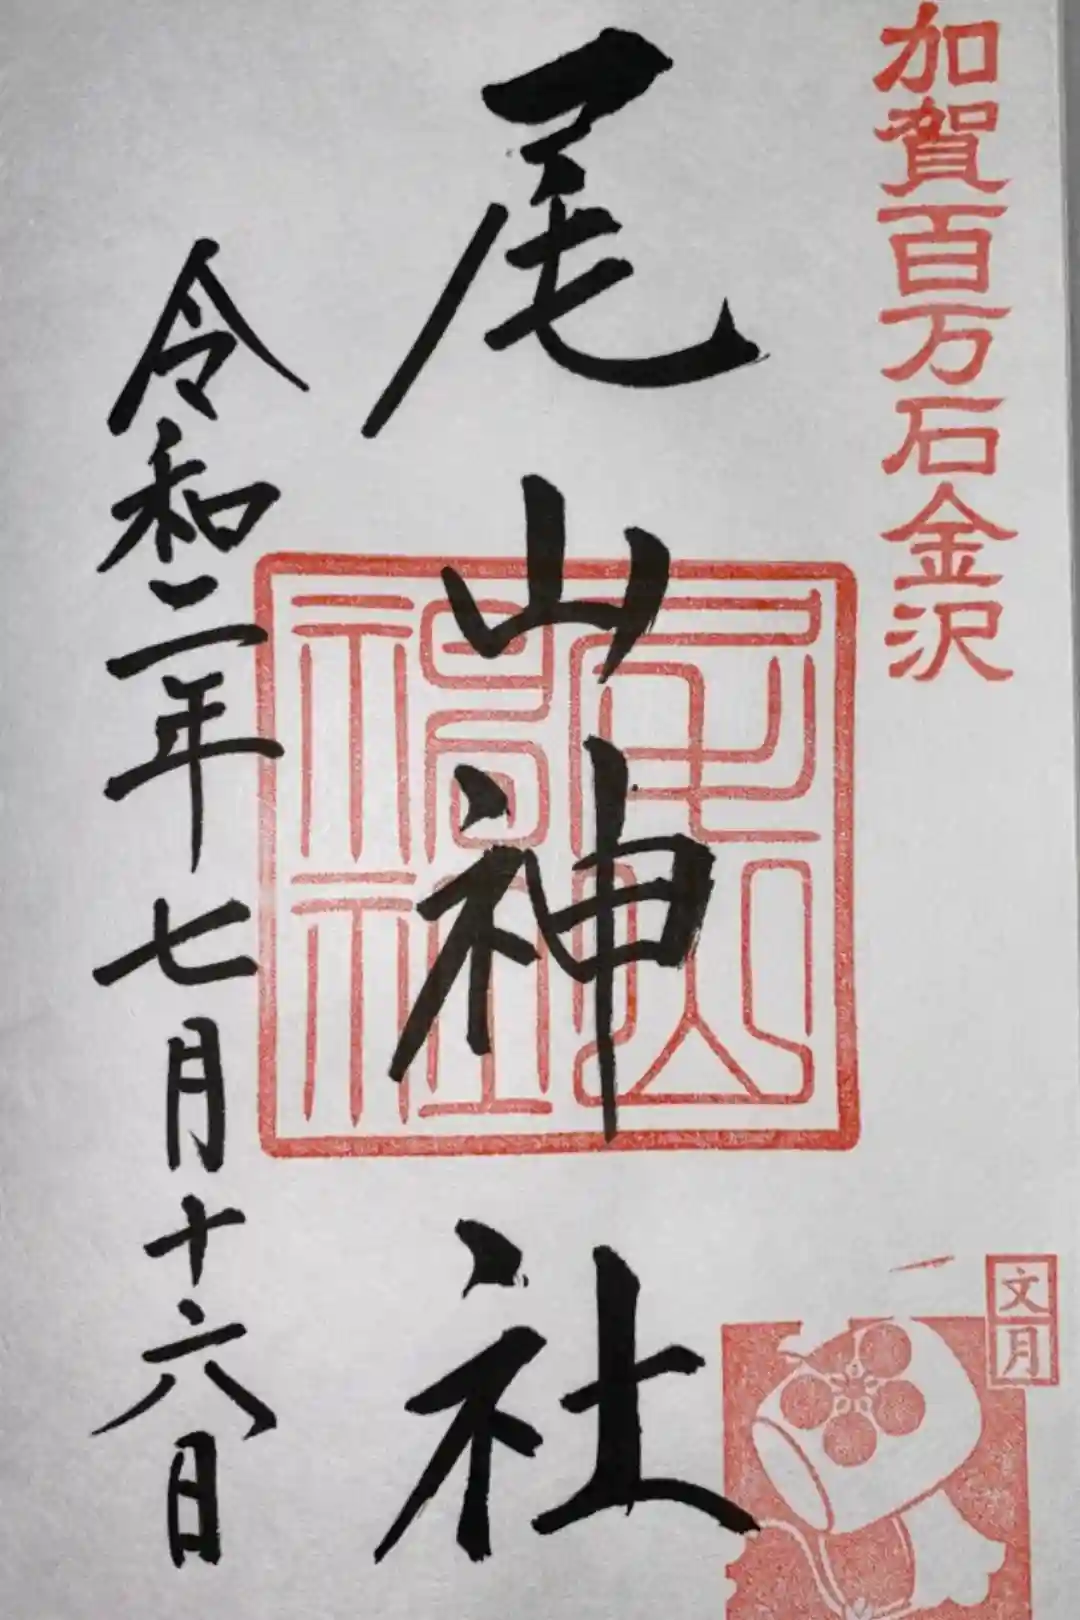 加賀百万石金沢
尾山神社
尾山神社
令和二年七月十六日
文月